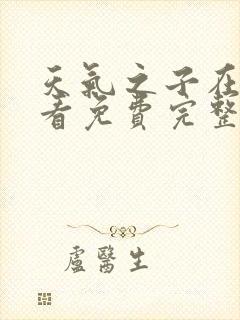 天氣之子在
看免費完整
盧醫生